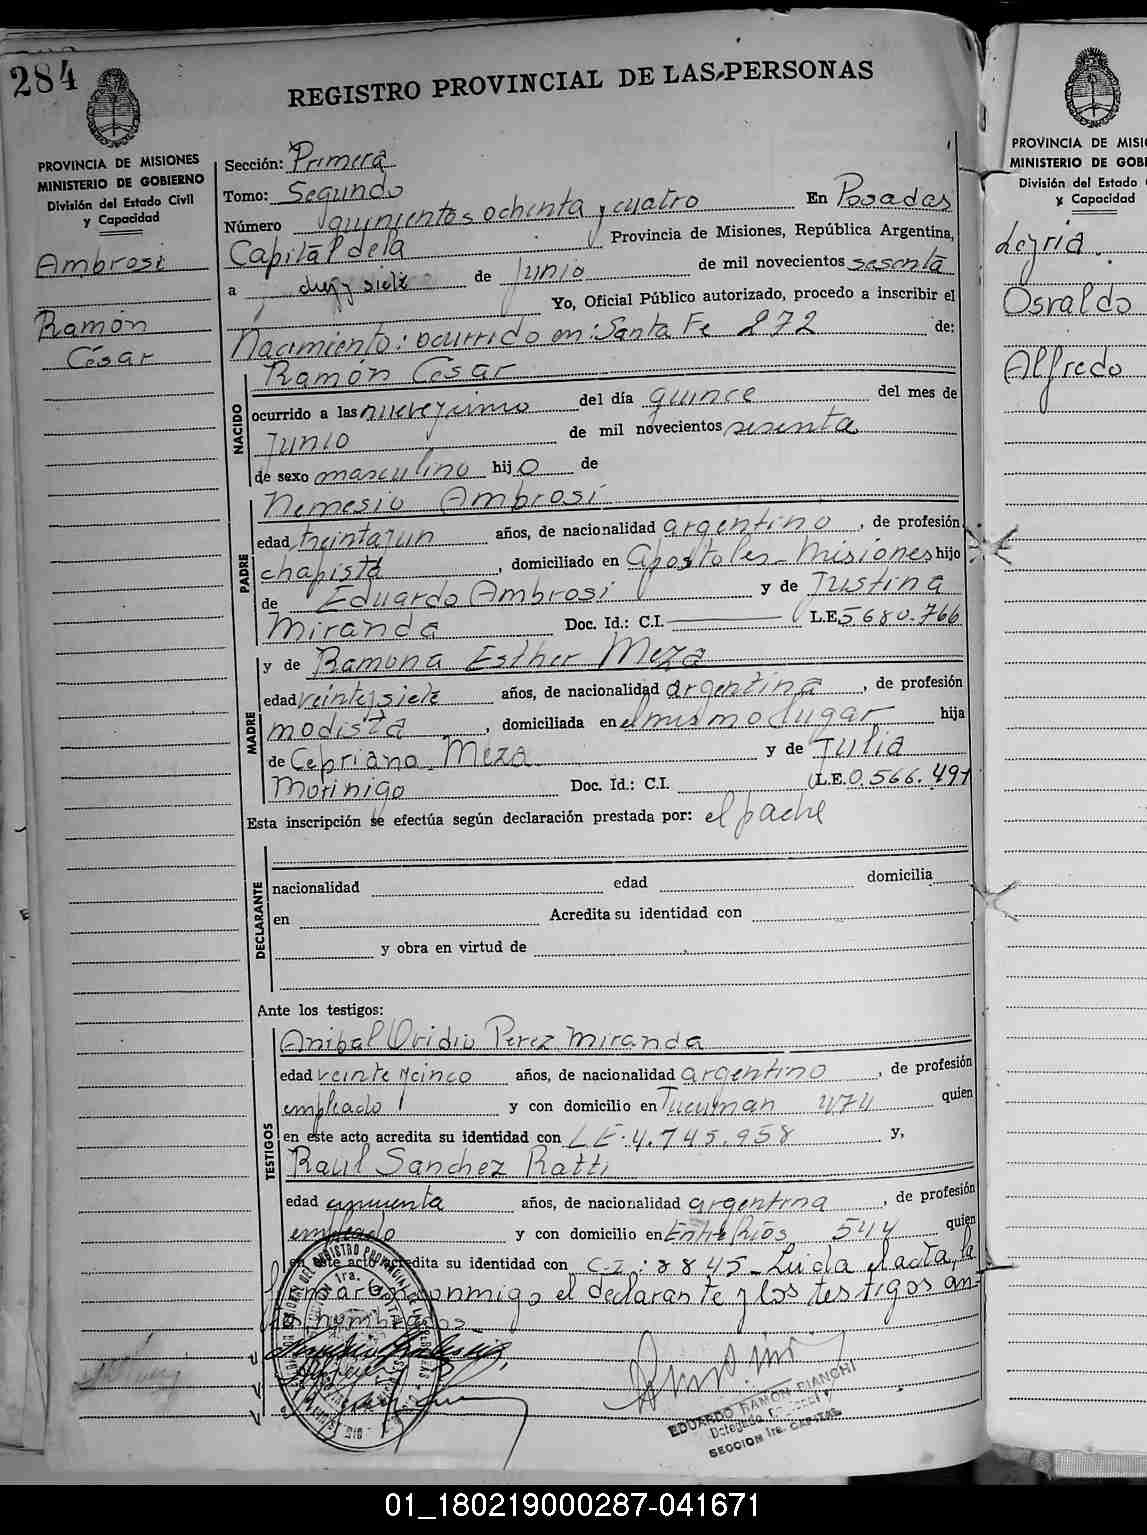 284
REGISTRO PROVINCIAL DE LAS PERSONAS
PROVINCIA DE MISIONES
MINISTERIO DE GOBIERNO
División del Estado Civil
y Capacidad
Ambrosi
Ramón
César
Sección: Primera
Tomo: Segundo
Número quinientos ochenta y cuatro En Posadas
Capital de la Provincia de Misiones, República Argentina,
a diez y siete de Junio de mil novecientos sesenta
Yo, Oficial Público autorizado, procedo a inscribir el
Nacimiento: ocurrido en: Santa Fe 272 de:
Ramón César
NACIDO
ocurrido a las nueve y del día quince del mes de
Junio de mil novecientos sesenta
de sexo masculino hijo de
Nemesio Ambrosi
PADRE
edad treinta y un años, de nacionalidad argentino, de profesión
chapista, domiciliado en Apostoles - Misiones hijo
de Eduardo Ambrosi y de Justina
Miranda Doc. Id.: C.I. L.E. 5680.766
y de Ramona Esther Meza
MADRE
edad veinte y siete años, de nacionalidad argentina, de profesión
modista, domiciliada en el mismo lugar hija
de Cepriano Meza y de Julia
Morinigo Doc. Id.: C.I. L.E. 0.566.491
Esta inscripción se efectúa según declaración prestada por: el padre
DECLARANTE
nacionalidad edad domicilia
en Acredita su identidad con
y obra en virtud de
Ante los testigos:
TESTIGOS
Anibal Ovidio Perez Miranda
edad veinte y cinco años, de nacionalidad argentino, de profesión
empleado y con domicilio en Tucuman 474 quien
en este acto acredita su identidad con L E. 4.745.958 y,
Raul Sanchez Ratti
edad cincuenta años, de nacionalidad argentina, de profesión
empleado y con domicilio en Entre Ríos 544 quien
en este acto acredita su identidad con C.I: 8845 - Leida el acta, la
firmaron conmigo el declarante y los testigos an-
tes nombrados
EDUARDO RAMON BIANCHI
SECCION 1ra. CAPITAL
PROVINCIA DE MISI
MINISTERIO DE GOBI
División del Estado
y Capacidad
Leyria
Osvaldo
Alfredo
01_180219000287-041671